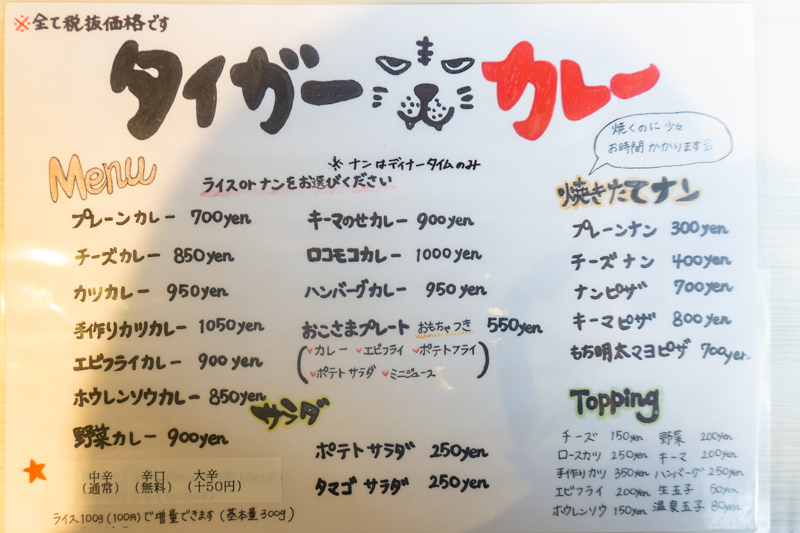 ※全て税抜価格です
タイガー カレー
焼くのに少々
お時間かかります
Menu
※ ナンはディナータイムのみ
ライスorナンをお選びください
プレーンカレー 700yen
チーズカレー 850yen
カツカレー 950yen
手作りカツカレー 1050yen
エビフライカレー 900yen
ホウレンソウカレー 850yen
野菜カレー 900yen
中辛 辛口 大辛
(通常) (無料) (+50円)
ライス100g(100円)で増量できます(基本量300g)
キーマのせカレー 900yen
ロコモコカレー 1000yen
ハンバーグカレー 950yen
おこさまプレート おもちゃつき 550yen
(♥カレー ♥エビフライ ♥ポテトフライ
♥ポテトサラダ ♥ミニジュース)
サラダ
ポテトサラダ 250yen
タマゴサラダ 250yen
焼きたてナン
プレーンナン 300yen
チーズナン 400yen
ナンピザ 700yen
キーマピザ 800yen
もち明太マヨピザ 700yen
Topping
チーズ 150yen 野菜 200yen
ロースカツ 250yen キーマ 200yen
手作りカツ 350yen ハンバーグ 250yen
エビフライ 200yen 生玉子 50yen
ホウレンソウ 150yen 温泉玉子 80yen